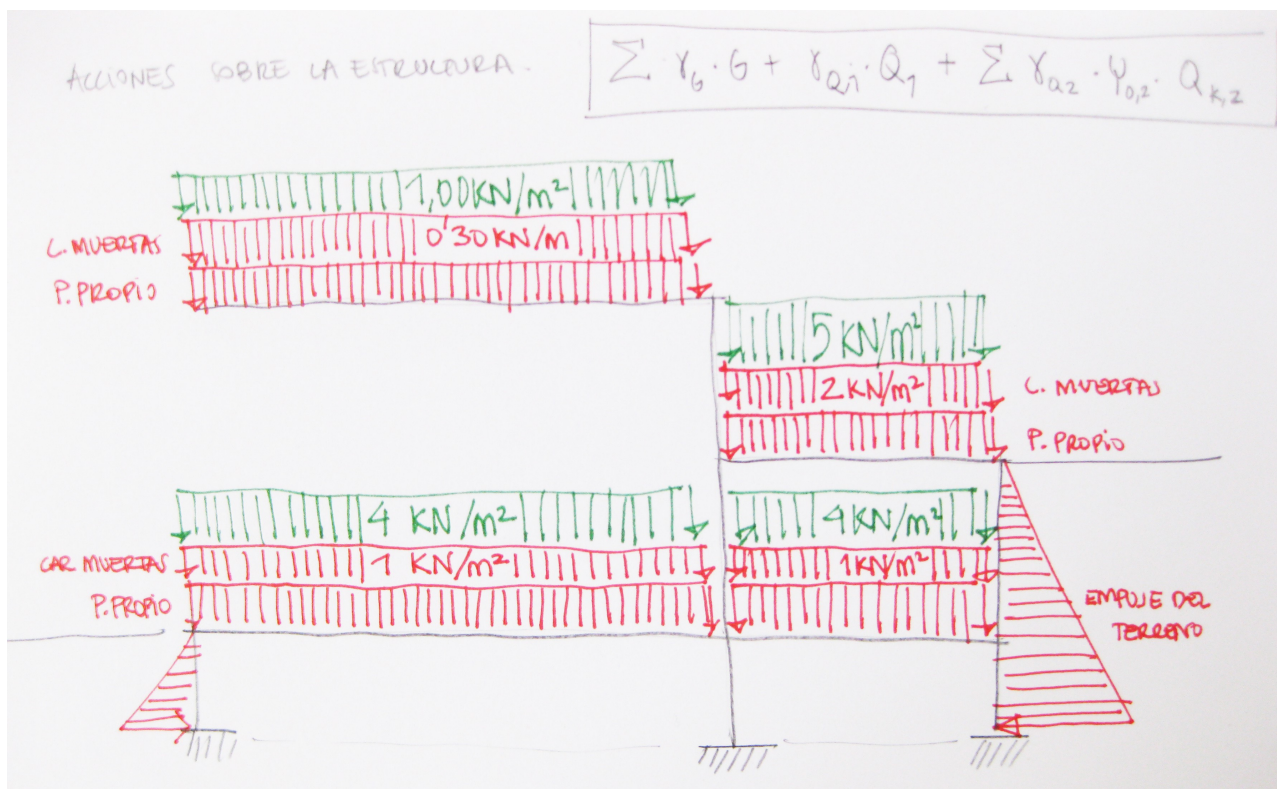 ACCIONES SOBRE LA ESTRUCTURA.
Σ γG · G + γQ,1 · Q1 + Σ γQ2 · Ψ0,2 · QK,2
1,00 KN/m²
C. MUERTAS
0'30 KN/m
P. PROPIO
5 KN/m²
2 KN/m²
C. MUERTAS
P. PROPIO
4 KN/m²
4 KN/m²
CAR MUERTAS
1 KN/m²
1 KN/m²
P. PROPIO
EMPUJE DEL
TERRENO